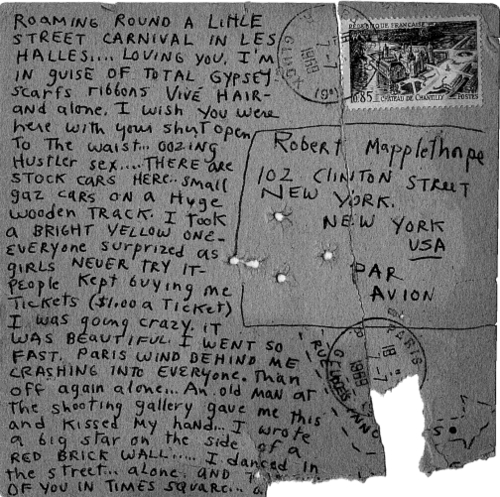 ROAMING ROUND A LITTLE
STREET CARNIVAL IN LES
HALLES.... LOVING YOU. I'M
IN GUISE OF TOTAL GYPSEY
SCARFS RIBBONS VIVE HAIR-
AND ALONE. I WISH YOU WERE
HERE WITH YOUR SHUT OPEN
TO THE WAIST... OOZING
HUSTLER SEX.... THERE ARE
STOCK CARS HERE.. SMALL
GAZ CARS ON A HUGE
WOODEN TRACK. I TOOK
A BRIGHT YELLOW ONE-
EVERYONE SURPRIZED AS
GIRLS NEVER TRY IT-
PEOPLE KEPT BUYING ME
TICKETS ($1.00 A TICKET)
I WAS GOING CRAZY. IT
WAS BEAUTIFUL. I WENT SO
FAST. PARIS WIND BEHIND ME
CRASHING INTO EVERYONE. THAN
OFF AGAIN ALONE... AN OLD MAN AT
THE SHOOTING GALLERY GAVE ME THIS
AND KISSED MY HAND... I WROTE
A BIG STAR ON THE SIDE OF A
RED BRICK WALL..... I DANCED IN
THE STREET... ALONE. AND
OF YOU IN TIMES SQUARE...
REPUBLIQUE FRANÇAISE
0,85 CHATEAU DE CHANTILLY POSTES
Robert Mapplethorpe
102 CLINTON STREET
NEW YORK.
NEW YORK
USA
PAR
AVION
PARIS
18
1969